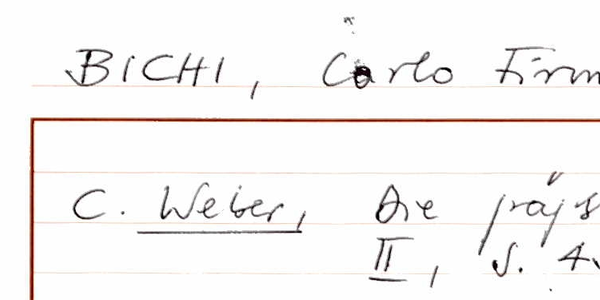 BICHI, Carlo Firm
C. Weber, Die päps
II, S. 4